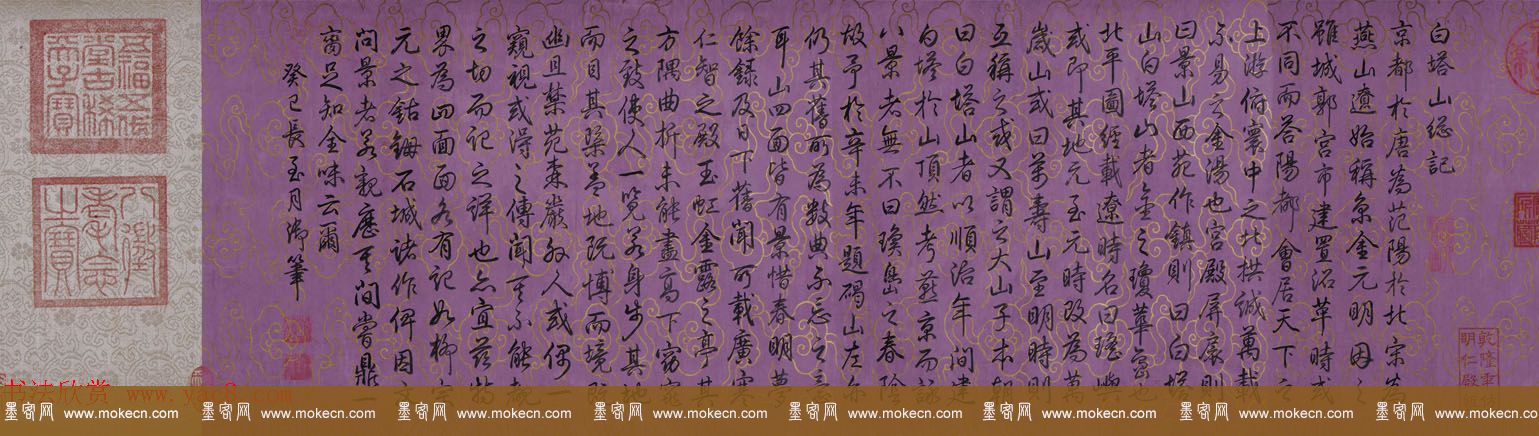 白塔山總記
京都於唐為范陽於北宋為
燕山遼始稱京金元明因之
雖城郭宮市建置沿革時或
不同而荅陽都會居天下之
上游俯寰中之北拱誠萬載
不易之金湯也宮殿屏扆則
曰景山西苑作鎮則曰白塔
山白塔山者金之瓊華島也
北平圖經載遼時名曰瑤嶼
或即其地元至元時改為萬
歲山或曰萬壽山至明時則
互稱之或又謂之大山子本朝
曰白塔山者以順治年間建
白塔於山頂然考燕京而詠
八景者無不曰瓊島之春陰
故予於辛未年題碣山左亦
仍其舊所為數典不忘之意
耳山四面皆有景惜春明夢
餘錄及日下舊聞所載廣寒
仁智之殿玉虹金露之亭其
方隅曲折未能盡高下窈窕
之致使人一覽若身步其地
而目其槩蓋地既博而境既
幽且禁苑森嚴外人或偶一
窺視或得之傳聞其不能親
之切而記之詳也亦宜茲特
界為四面面各有記如柳宗
元之鈷鉧石城諸作俾因文
問景者若親歷其間嘗鼎一
臠足知全味云爾
癸巳長至月御筆
五福五代堂古稀天子寶
八徵耄念之寶
書法欣賞 www.y
墨客网 www.mokecn.com 墨客网 www.mokecn.com 墨客网 www.mokecn.com 墨客网 www.mokecn.com 墨客网 www.mokecn.com 墨客网 www.mokecn.com 墨客网 www.mokecn.com 墨客网 www.mokecn.com